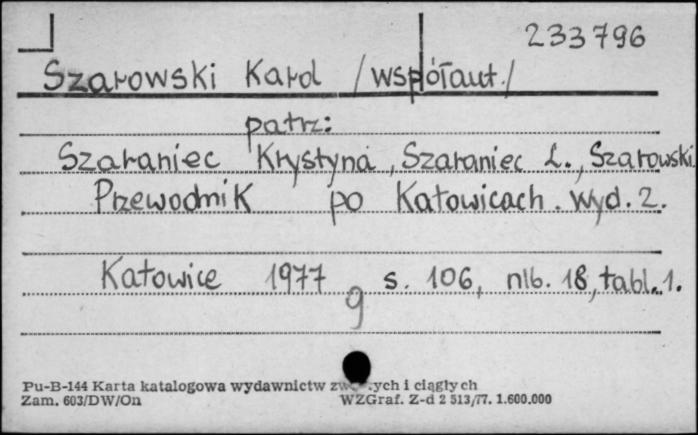 233796
Szarowski Karol /współaut./
patrz:
Szaraniec Krystyna, Szaraniec L., Szarowski
Przewodnik po Katowicach. Wyd. 2.
Katowice 1977 s. 106, nlb. 18, tabl. 1.
g
Pu-B-144 Karta katalogowa wydawnictw i ciągłych
Zam. 603/DW/On WZGraf. Z-d 2 513/77. 1.600.000